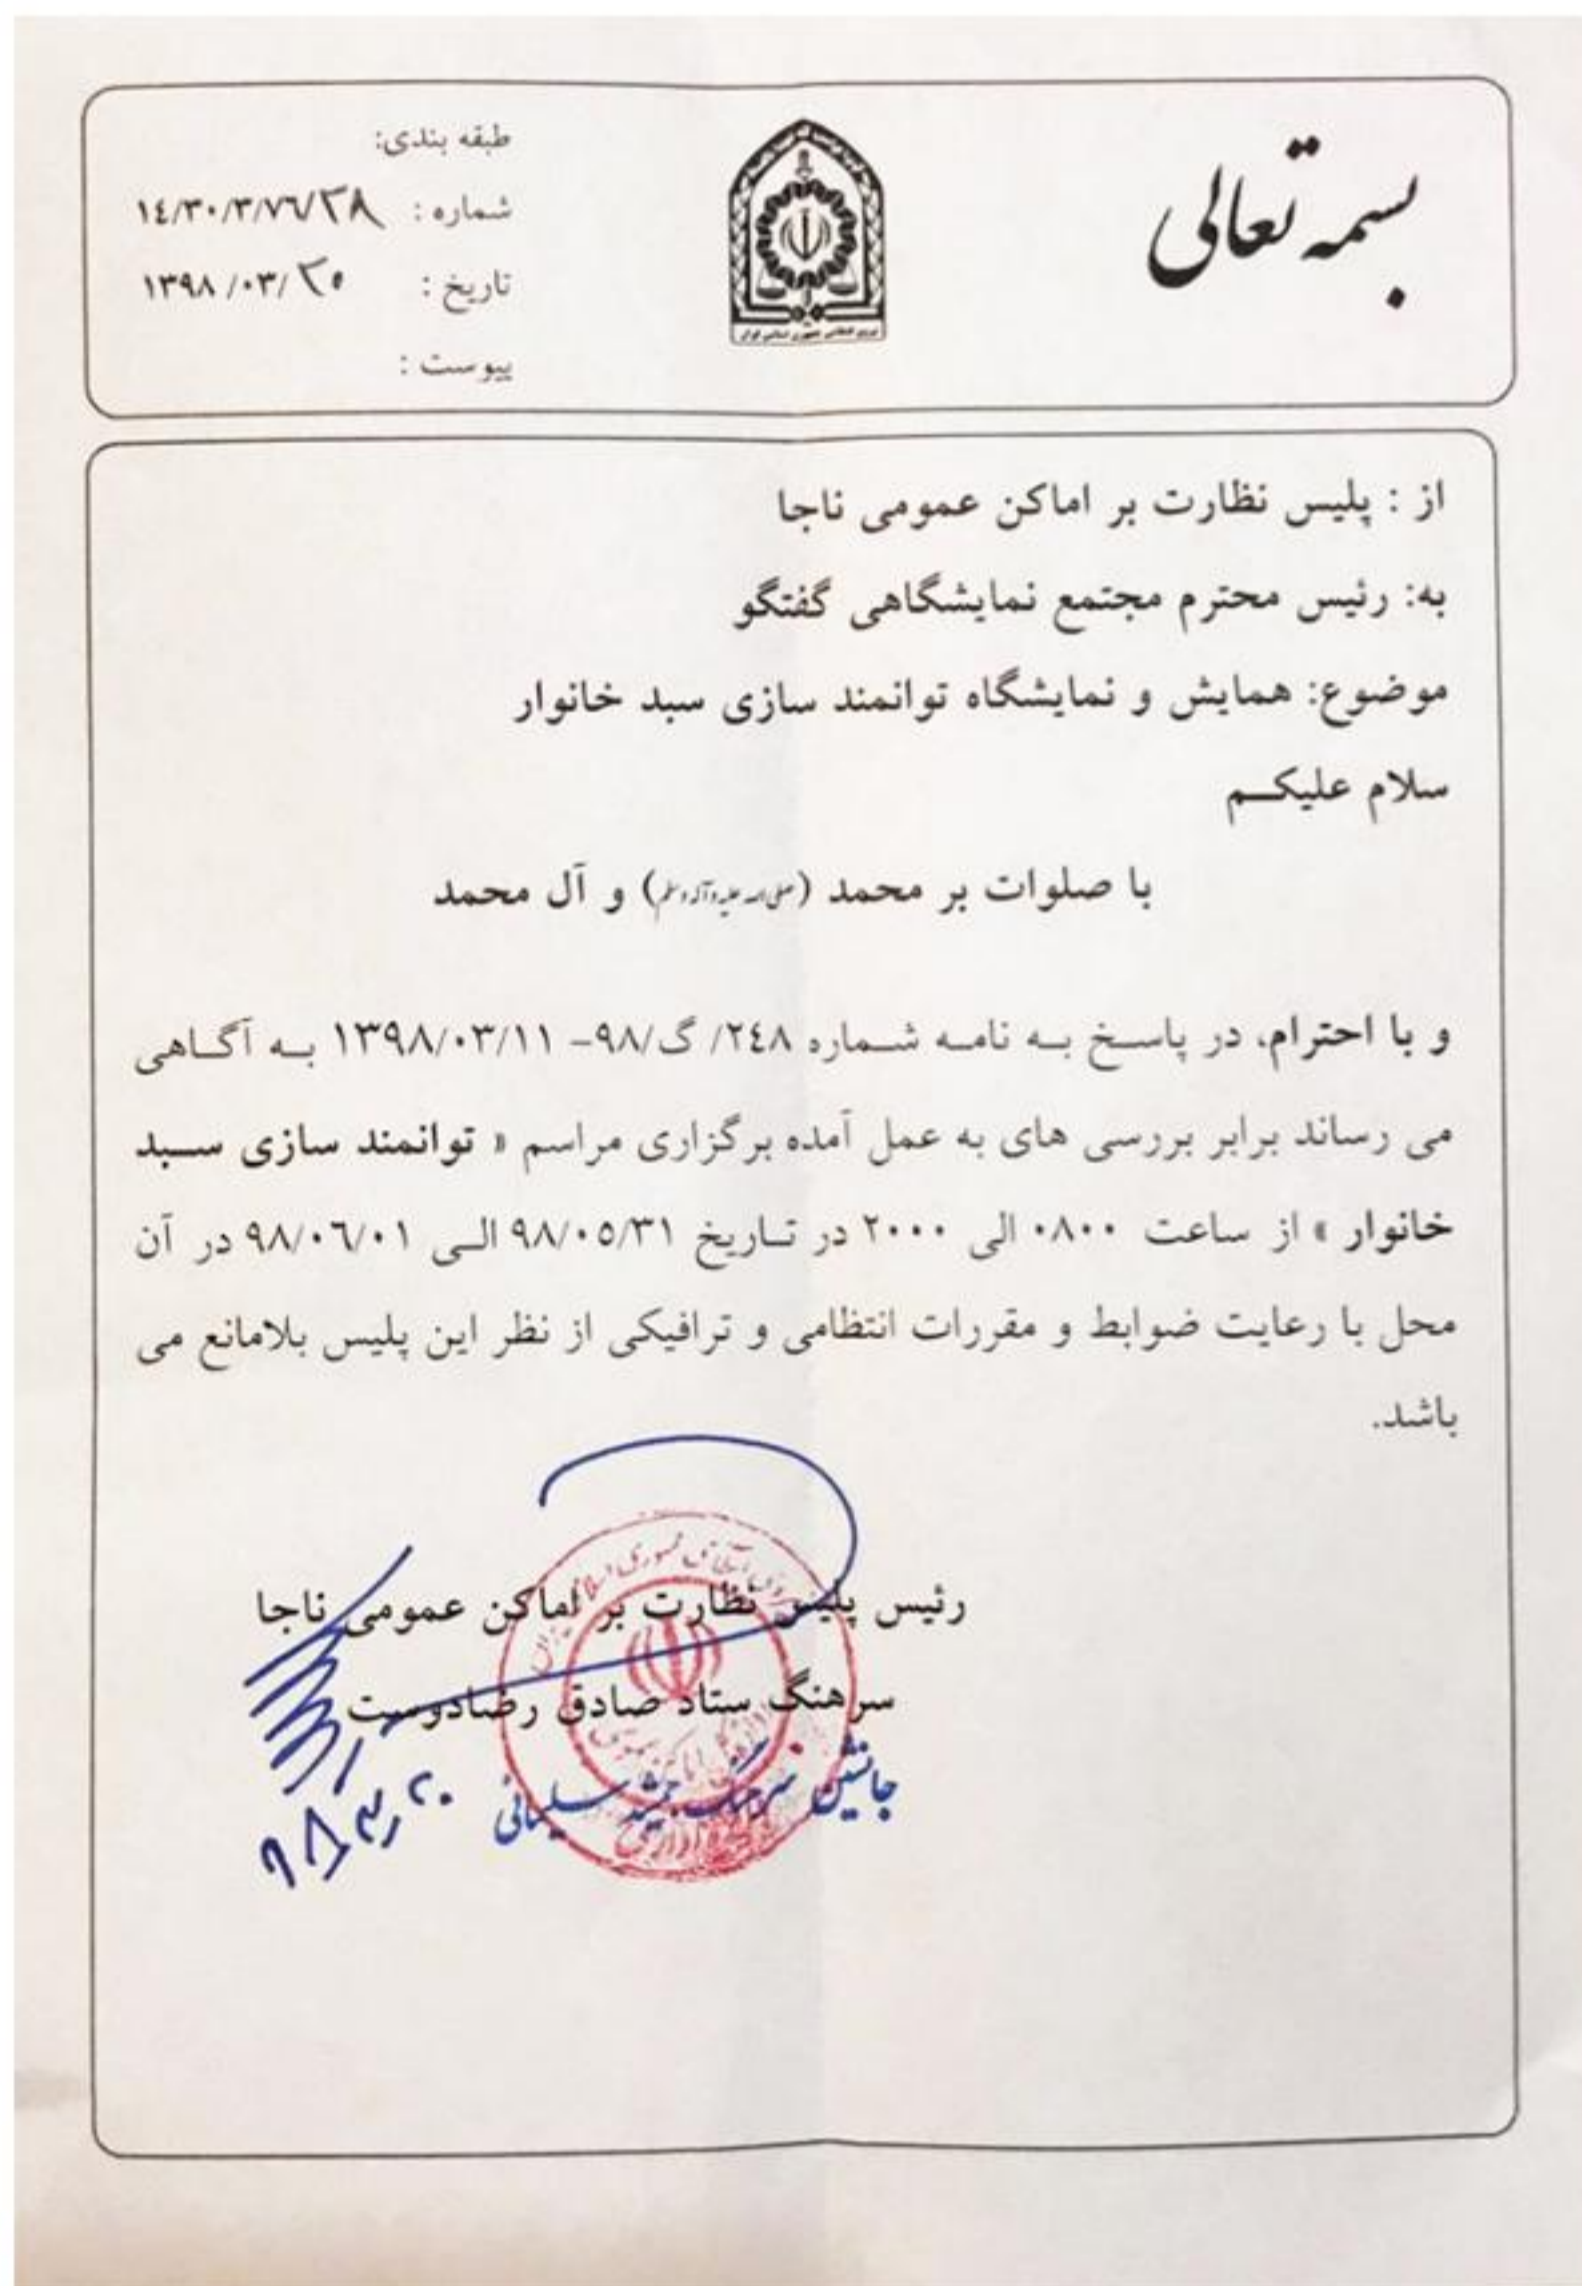 بسمه تعالی
طبقه بندی:
شماره : ١٤/٣٠/٣/٧٦/٣٨
تاریخ : ١٣٩٨/٠٣/٢٥
پیوست :
نیروی انتظامی جمهوری اسلامی ایران
از : پلیس نظارت بر اماکن عمومی ناجا
به: رئیس محترم مجتمع نمایشگاهی گفتگو
موضوع: همایش و نمایشگاه توانمند سازی سبد خانوار
سلام علیکم
با صلوات بر محمد (صلی الله علیه و آله وسلم) و آل محمد
و با احترام، در پاسخ به نامه شماره ٢٤٨/ گ/٩٨- ١٣٩٨/٠٣/١١ به آگاهی
می رساند برابر بررسی های به عمل آمده برگزاری مراسم « توانمند سازی سبد
خانوار » از ساعت ٠٨٠٠ الی ٢٠٠٠ در تاریخ ٩٨/٠٥/٣١ الی ٩٨/٠٦/٠١ در آن
محل با رعایت ضوابط و مقررات انتظامی و ترافیکی از نظر این پلیس بلامانع می
باشد.
رئیس پلیس نظارت بر اماکن عمومی ناجا
سرهنگ ستاد صادق رضادوست
جانشین سرهنگ جمشید سلیمانی